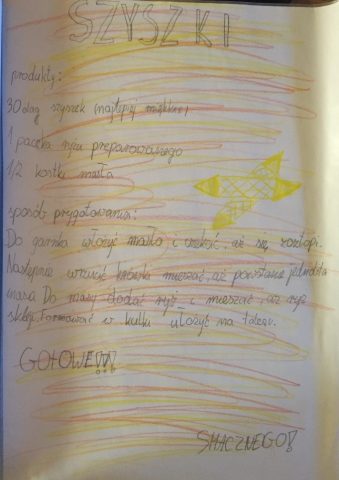 SZYSZKI
produkty:
30 dag szyszek (najlepiej miękkie)
1 paczka ryżu preparowanego
1/2 kostki masła
sposób przygotowania:
Do garnka włożyć masło i czekać, aż się roztopi.
Następnie wrzucić mieszać, aż powstanie jednolita
masa. Do masy dodać ryż i mieszać, aż się
sklei. Formować w kulki ułożyć na talerz.
GOTOWE!!!
SMACZNEGO!